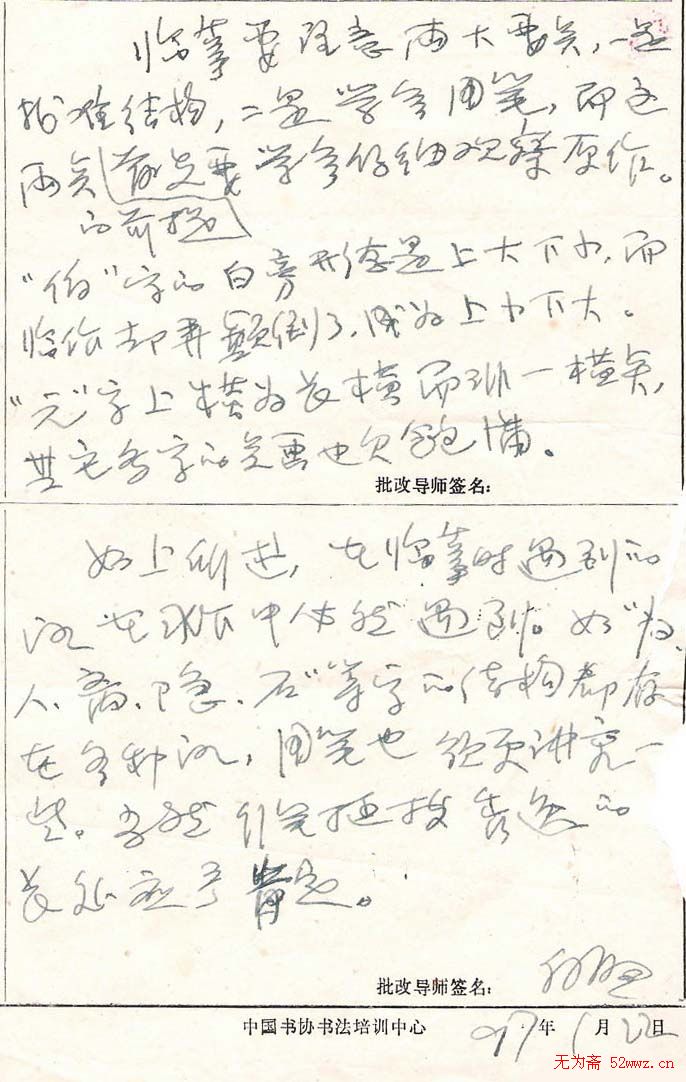 临摹要注意两大要点，一是
找准结构，二是学会用笔，而这
两点的前提首先要学会仔细观察原作。
“伯”字的白旁形态是上大下小，而
临作却弄颠倒了，成为上小下大。
“元”字上横为长横而非一横点，
其它各字的点画也欠饱满。
批改导师签名：
如上所述，在临摹时遇到的
在 中依然遇到。如“为、
人、斋、隐、石”等字的结构都存
在各种 ，用笔也须更讲究一
些。当然 的
长处应予肯定。
批改导师签名：
中国书协书法培训中心 97年1月22日
无为斋 52wwz.cn